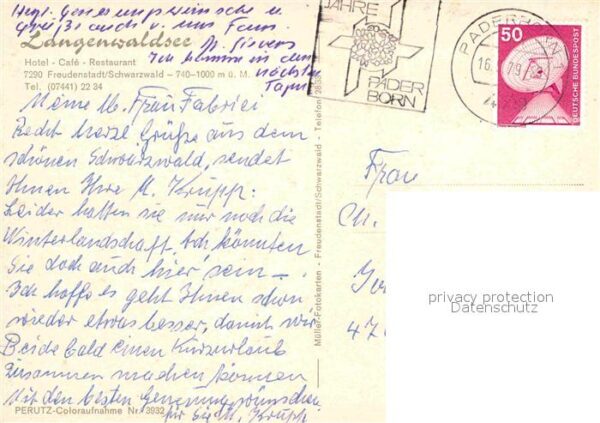 Herzl. Genesungswünsche u.
Grüße auch v. uns Fam.
Dr. Sievers
Ich komme in den
nächsten
Tagen
Langenwaldsee
Hotel - Café - Restaurant
7290 Freudenstadt/Schwarzwald – 740-1000 m ü. M.
Tel. (07441) 22 34
Meine lb. Frau Fabrici
Recht herzl. Grüße aus dem
schönen Schwarzwald, sendet
Ihnen Ihre M. Krupp.
Leider hatten sie nur noch die
Winterlandschaft. Ach könnten
Sie doch auch hier sein –
Ich hoffe es geht Ihnen schon
wieder etwas besser, damit wir
Beide bald einen Kurzurlaub
zusammen machen können
Mit den besten Genesungswünschen
für Sie M. Krupp
PERUTZ-Coloraufnahme Nr. 3932
Müller-Fotokarten - Freudenstadt/Schwarzwald - Telefon
JAHRE
PADER
BORN
PADERBORN 1
16.
79
50
DEUTSCHE BUNDESPOST
Frau
Ch.
47
privacy protection
Datenschutz